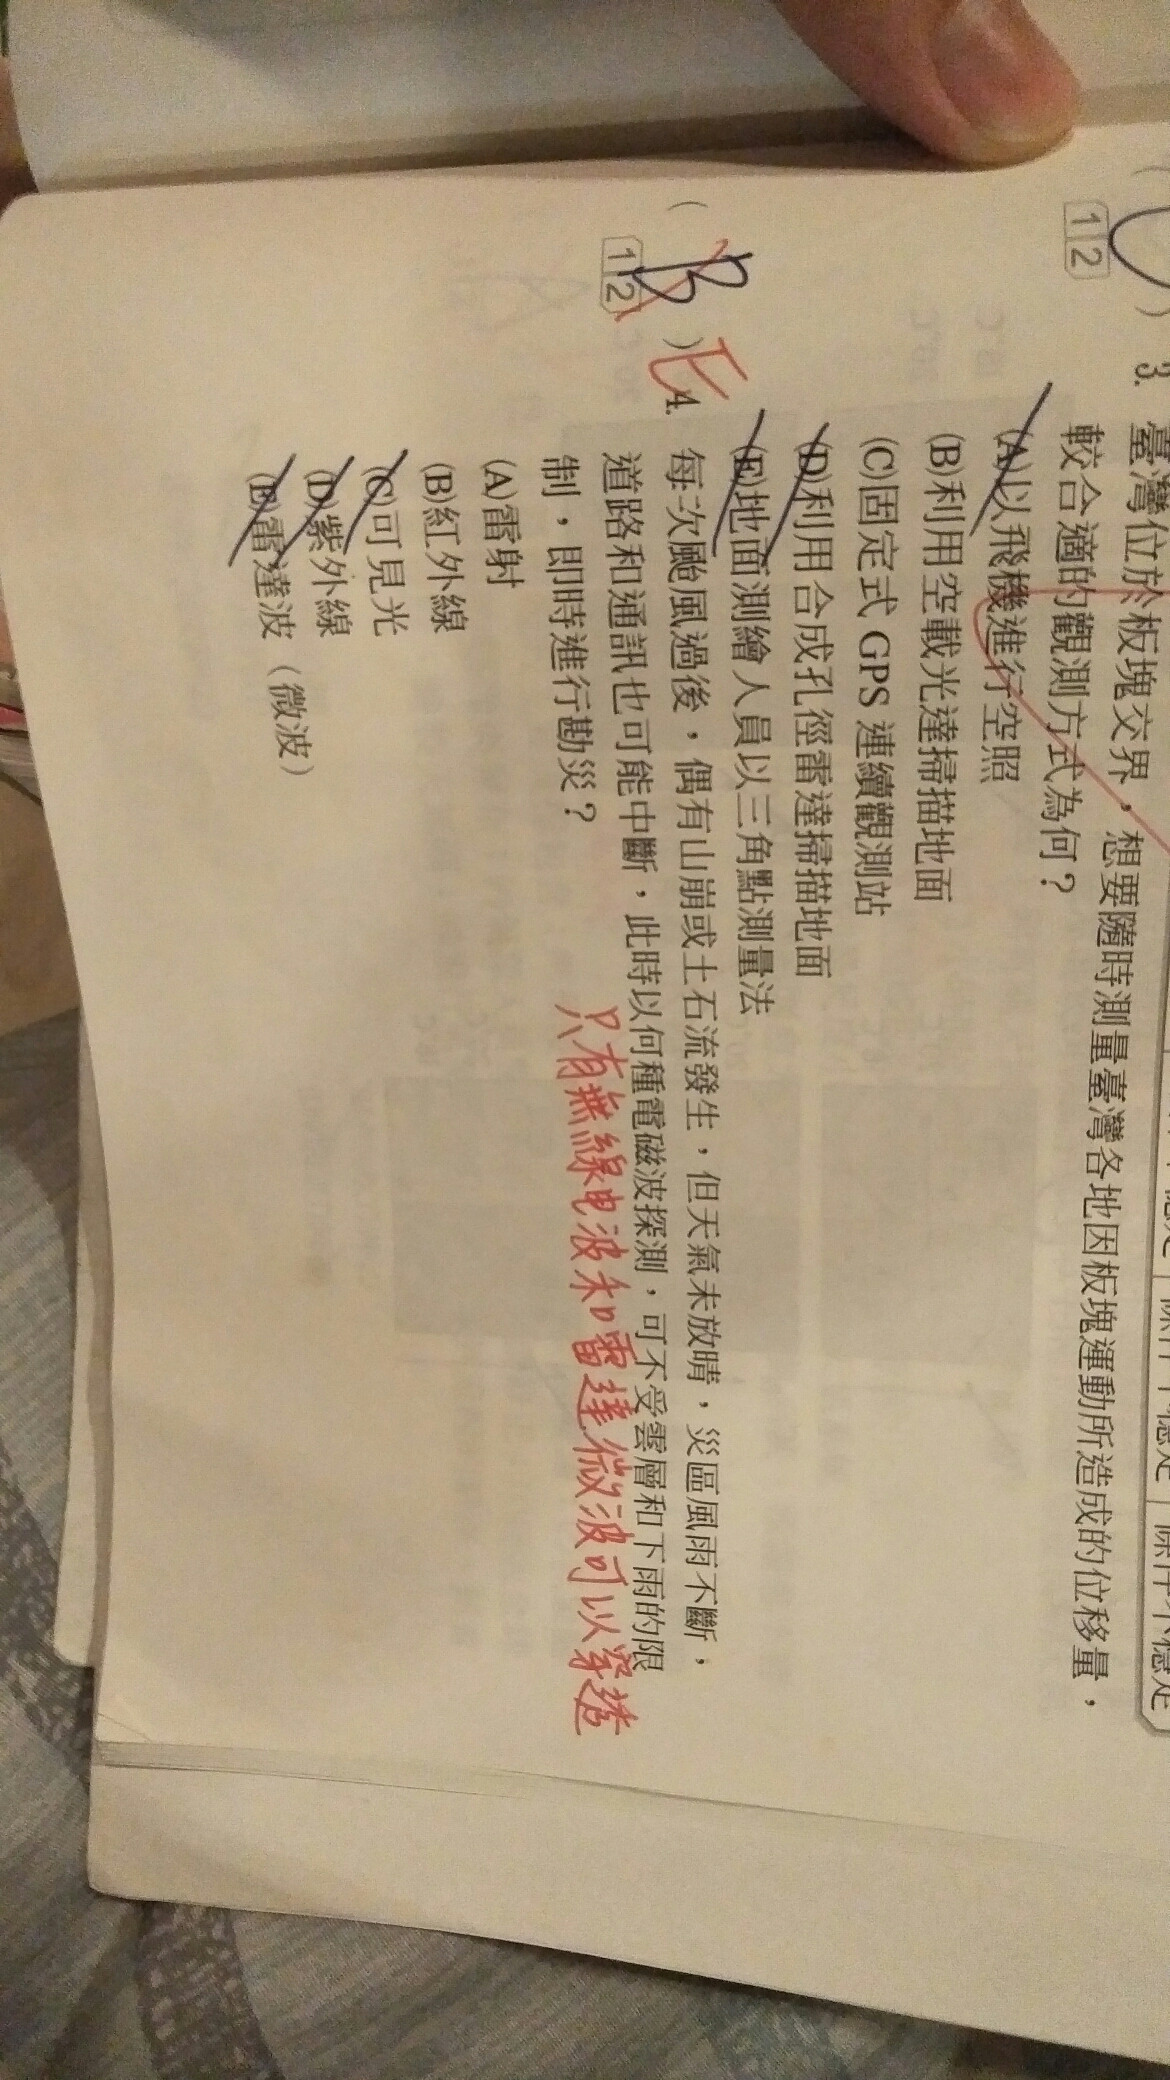 (C) 3. 臺灣位於板塊交界，想要隨時測量臺灣各地因板塊運動所造成的位移量，
12 較合適的觀測方式為何？
(A)以飛機進行空照
(B)利用空載光達掃描地面
(C)固定式 GPS 連續觀測站
(D)利用合成孔徑雷達掃描地面
(E)地面測繪人員以三角點測量法
(B) E 4. 每次颱風過後，偶有山崩或土石流發生，但天氣未放晴，災區風雨不斷，
12 道路和通訊也可能中斷，此時以何種電磁波探測，可不受雲層和下雨的限
制，即時進行勘災？
只有無線电波和雷達微波可以穿透
(A)雷射
(B)紅外線
(C)可見光
(D)紫外線
(E)雷達波（微波）